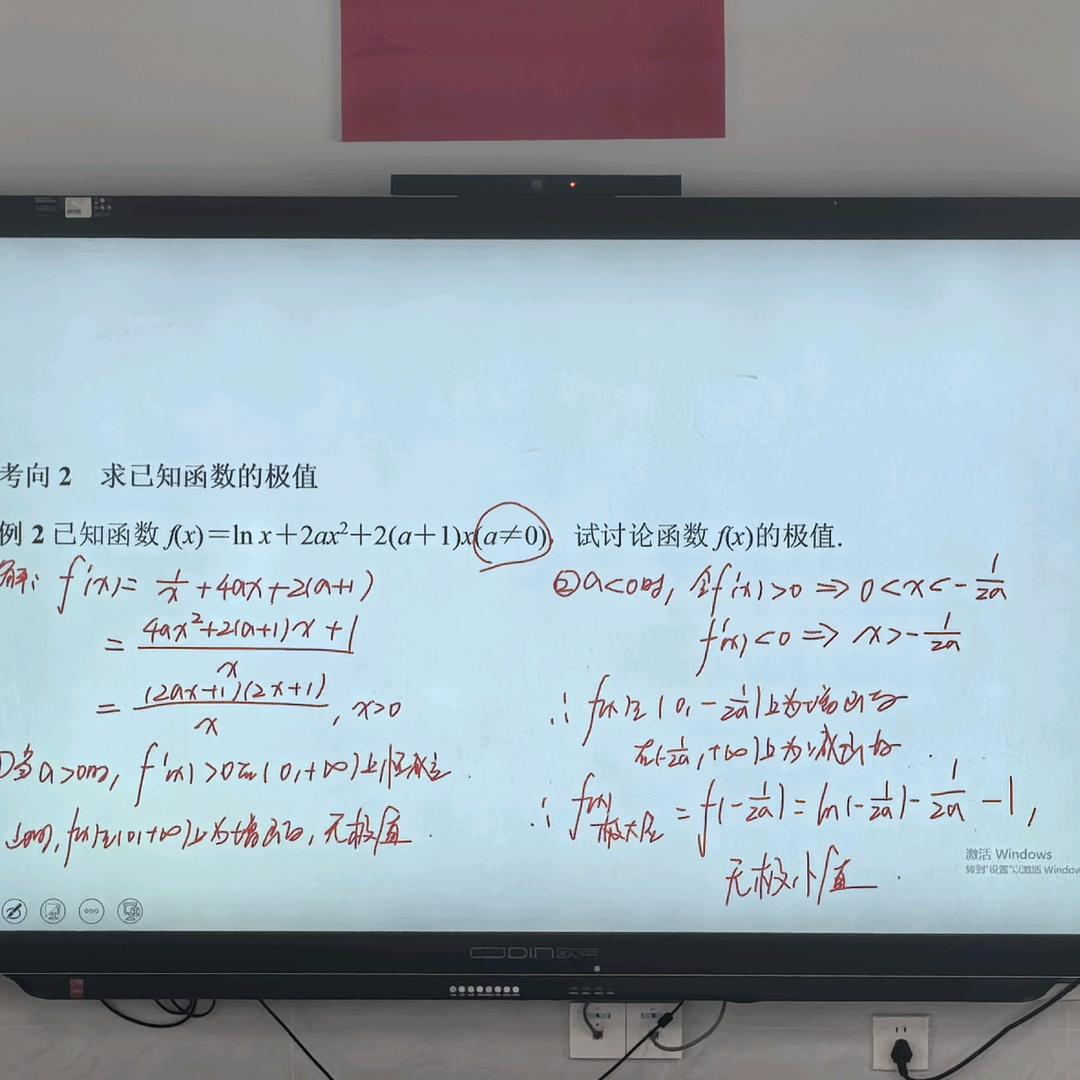 考向 2 求已知函数的极值
例 2 已知函数 f(x)=ln x+2ax²+2(a+1)x(a≠0), 试讨论函数 f(x)的极值.
解: f'(x)= 1/x +4ax+2(a+1)
= (4ax²+2(a+1)x+1)/x
= ((2ax+1)(2x+1))/x , x>0
①当a>0时, f'(x)>0在(0,+∞)上恒成立.
此时, f(x)在(0,+∞)上为增函数, 无极值.
②a<0时, 令f'(x)>0 ⇒ 0<x<-1/2a
f'(x)<0 ⇒ x>-1/2a
∴ f(x)在(0,-1/2a)上为增函数
在(-1/2a,+∞)上为减函数.
∴ f(x)极大值 = f(-1/2a)=ln(-1/2a)-1/2a-1,
无极小值.
激活 Windows
转到"设置"以激活 Window
ODIN